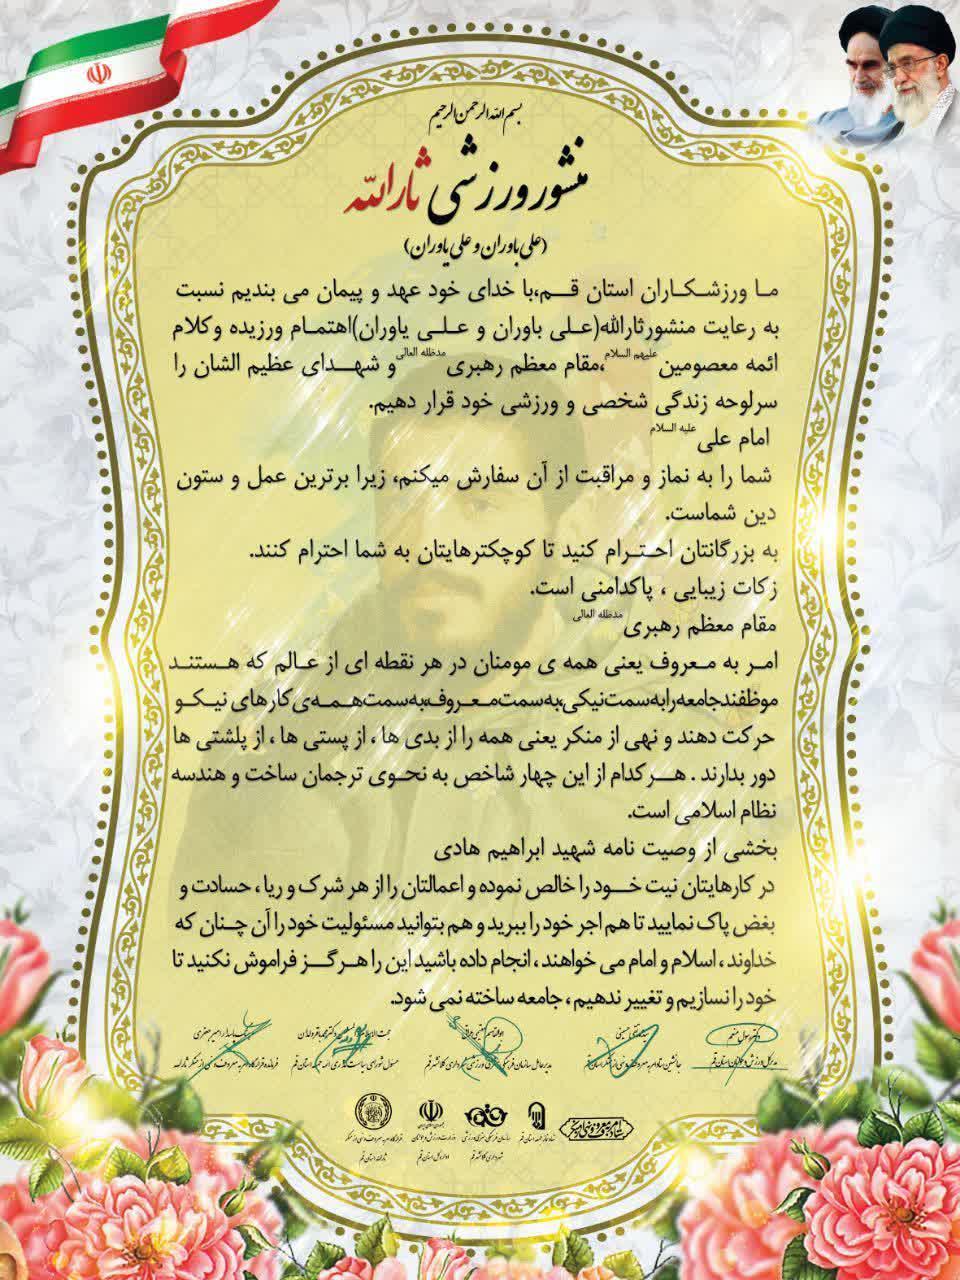 بسم الله الرحمن الرحیم
منشور ورزشی ثارالله
(علی باوران و علی یاوران)
ما ورزشکاران استان قم،با خدای خود عهد و پیمان می بندیم نسبت
به رعایت منشورثارالله(علی باوران و علی یاوران)اهتمام ورزیده وکلام
ائمه معصومین علیهم السلام،مقام معظم رهبری مدظله العالی و شهدای عظیم الشان را
سرلوحه زندگی شخصی و ورزشی خود قرار دهیم.
امام علی علیه السلام
شما را به نماز و مراقبت از آن سفارش میکنم، زیرا برترین عمل و ستون
دین شماست.
به بزرگانتان احترام کنید تا کوچکترهایتان به شما احترام کنند.
زکات زیبایی ، پاکدامنی است.
مقام معظم رهبری مدظله العالی
امر به معروف یعنی همه ی مومنان در هر نقطه ای از عالم که هستند
موظفند جامعه را به سمت نیکی،به سمت معروف،به سمت همه ی کارهای نیکو
حرکت دهند و نهی از منکر یعنی همه را از بدی ها ، از پستی ها ، از پلشتی ها
دور بدارند . هر کدام از این چهار شاخص به نحوی ترجمان ساخت و هندسه
نظام اسلامی است.
بخشی از وصیت نامه شهید ابراهیم هادی
در کارهایتان نیت خود را خالص نموده و اعمالتان را از هر شرک و ریا ، حسادت و
بغض پاک نمایید تا هم اجر خود را ببرید و هم بتوانید مسئولیت خود را آن چنان که
خداوند ، اسلام و امام می خواهند ، انجام داده باشید این را هرگز فراموش نکنید تا
خود را نسازیم و تغییر ندهیم ، جامعه ساخته نمی شود.
مدیرکل ورزش و جوانان استان قم
ستاد امر به معروف و نهی از منکر